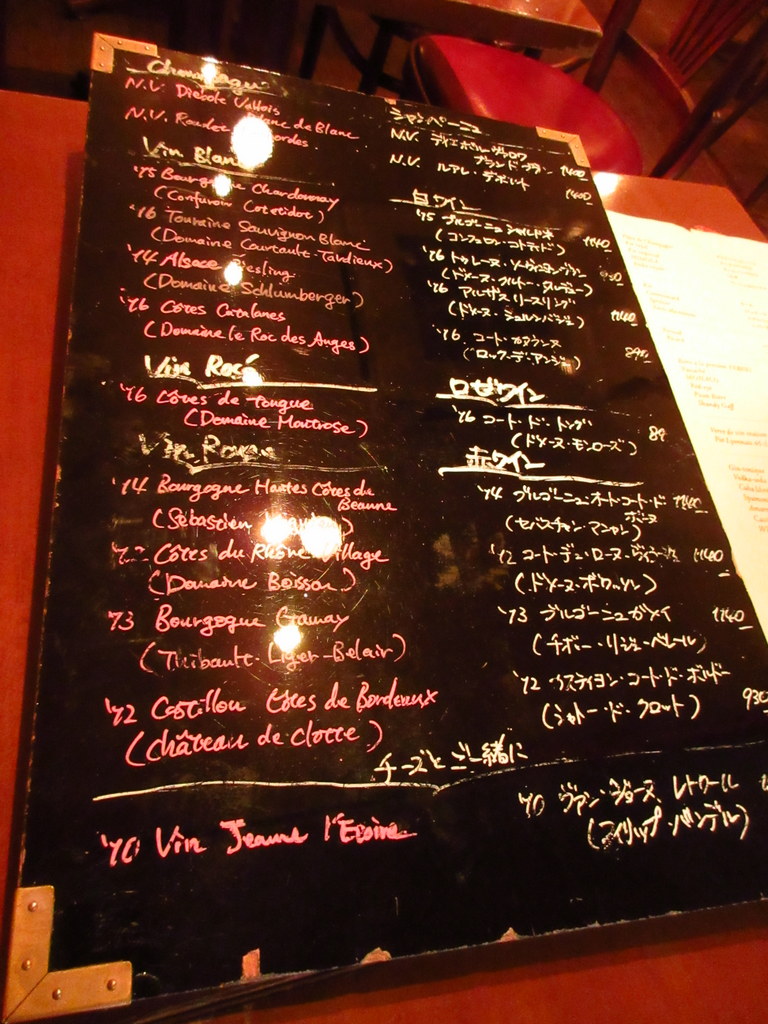 Champagne
N.V. Diebolt Vallois
N.V. Blanc de Blanc
Vin Blanc
'15 Bourgogne Chardonnay
(Confuron Cotetidot)
'16 Touraine Sauvignon Blanc
(Domaine Courtault-Tardieux)
'14 Alsace Riesling
(Domaine Schlumberger)
'16 Côtes Catalanes
(Domaine le Roc des Anges)
Vin Rosé
'16 Côtes de Tongue
(Domaine Montrose)
Vin Rouge
'14 Bourgogne Hautes Côtes de
Beaune
(Sébastien
'12 Côtes du Rhône Village
(Domaine Boisson)
'13 Bourgogne Gamay
(Thibault Liger-Belair)
'12 Castillon Côtes de Bordeaux
(Château de Clotte)
シャンペーニュ
N.V. ディエボル・ヴァロワ
ブラン ド ブラン 1600
N.V. 1600
白ワイン
'15 ブルゴーニュ シャルドネ 1140
(コンフュロン・コトティド)
'16 トゥレーヌ・ソーヴィニヨンブラン
(ドメーヌ・クルトー・タルデュー)
'16 アルザス リースリング 1140
(ドメーヌ・シュルンバジェ)
'16 コート・カタランヌ 890
(ロック・デ・アンジュ)
ロゼワイン
'16 コート・ド・トング 89
(ドメーヌ・モンローズ)
赤ワイン
'14 ブルゴーニュ・オート・コート・ド 1140
ボーヌ
(セバスチャン・マニャン)
'12 コート・デュ・ローヌ・ヴィラージュ 1140
(ドメーヌ・ボワッソン)
'13 ブルゴーニュ ガメイ 1140
(チボー・リジェ・ベレール)
'12 カスティヨン・コート・ド・ボルドー 930
(シャトー・ド・クロット)
チーズとご一緒に
'10 Vin Jeaune l'Etoile
'10 ヴァン・ジョーヌ レトワール
(フィリップ・バンデル)